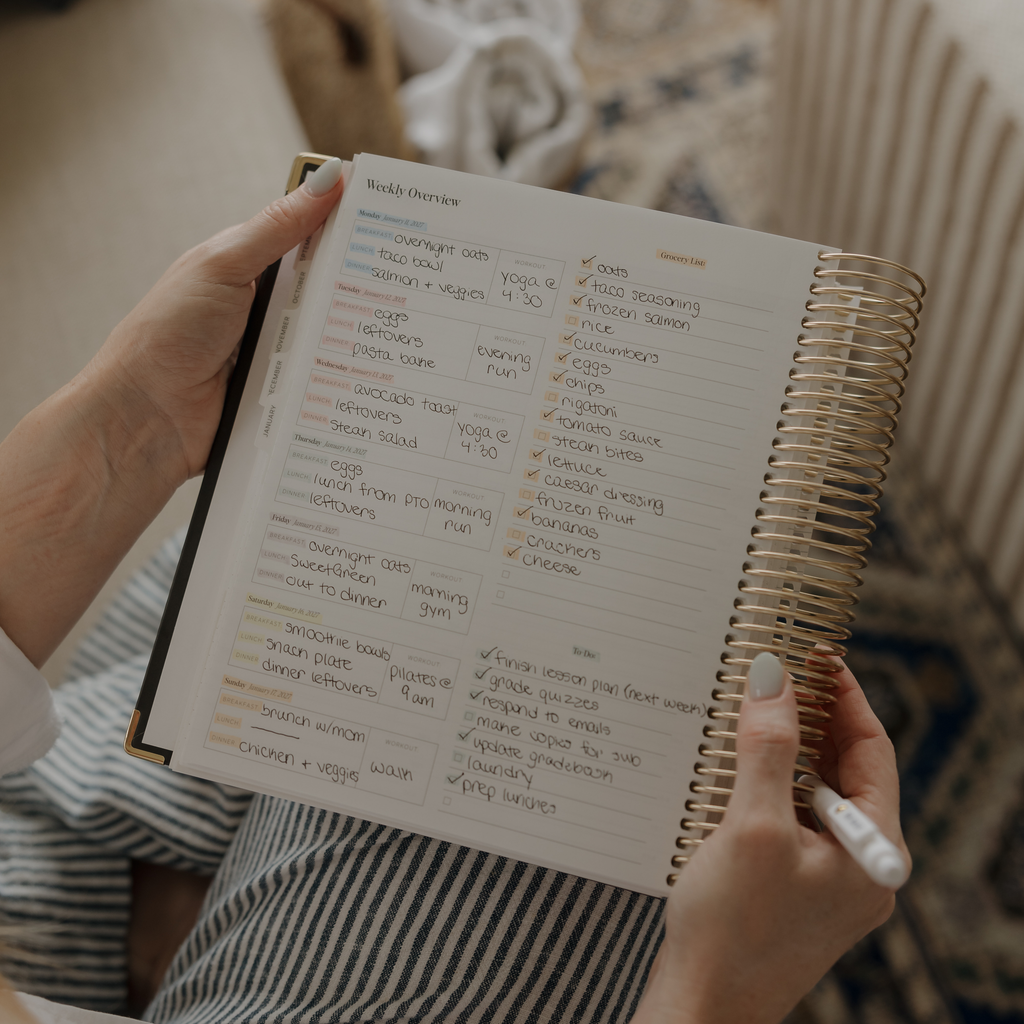 Weekly Overview
Monday January 11, 2027
BREAKFAST: overnight oats
LUNCH: taco bowl
DINNER: salmon + veggies
WORKOUT:
yoga @
4:30
Tuesday January 12, 2027
BREAKFAST: eggs
LUNCH: leftovers
DINNER: pasta bake
WORKOUT:
evening
run
Wednesday January 13, 2027
BREAKFAST: avocado toast
LUNCH: leftovers
DINNER: steak salad
WORKOUT:
yoga @
4:30
Thursday January 14, 2027
BREAKFAST: eggs
LUNCH: lunch from PTO
DINNER: leftovers
WORKOUT:
morning
run
Friday January 15, 2027
BREAKFAST: overnight oats
LUNCH: SweetGreen
DINNER: out to dinner
WORKOUT:
morning
gym
Saturday January 16, 2027
BREAKFAST: smoothie bowls
LUNCH: snack plate
DINNER: dinner leftovers
WORKOUT:
pilates @
9am
Sunday January 17, 2027
BREAKFAST: brunch w/mom
LUNCH:
DINNER: chicken + veggies
WORKOUT:
walk
Grocery List:
oats
taco seasoning
frozen salmon
rice
cucumbers
eggs
chips
rigatoni
tomato sauce
steak bites
lettuce
caesar dressing
frozen fruit
bananas
crackers
cheese
To Do:
finish lesson plan (next week)
grade quizzes
respond to emails
make copies for sub
update gradebook
laundry
prep lunches
OCTOBER
NOVEMBER
DECEMBER
JANUARY